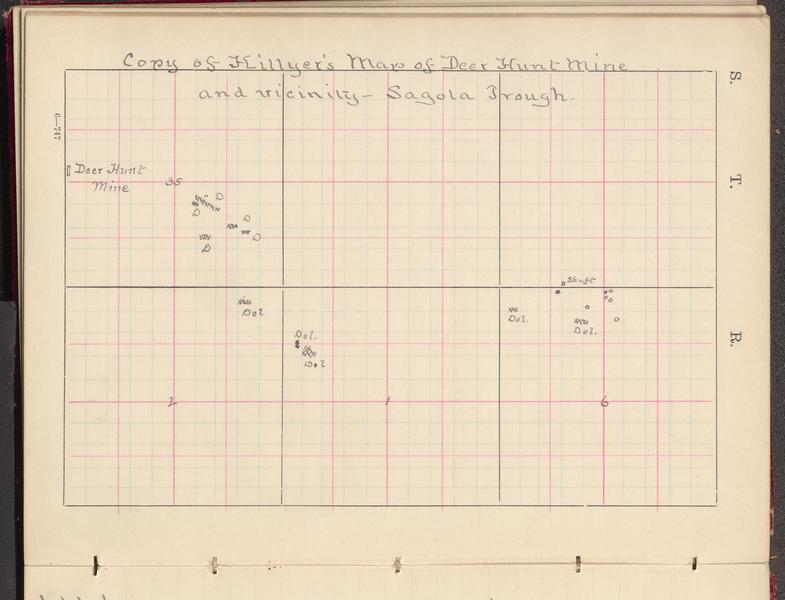 Copy of Hillyer's Map of Deer Hunt Mine
and vicinity – Sagola Trough.
S.
6—747
Deer Hunt
Mine
35
T.
D
D
D
D
D
Shaft
Dol
Dol.
Dol.
Dol.
Dol
R.
2
1
6